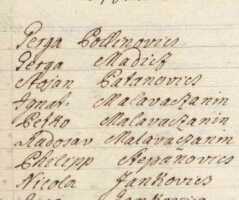 Perga Pollenovics
Perga Madich
Stojan Patanovics
Ignat Malavaszanin
Petko Malavaszanin
Radosav Malavaszanin
Philepp Stepanovics
Nicola Jankovics
Jankovics